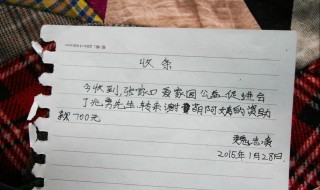 收条
今收到，张家口爱家园公益促进会
丁兆亮先生转来谢曹胡阿姨的资助
款700元
2015年1月28日